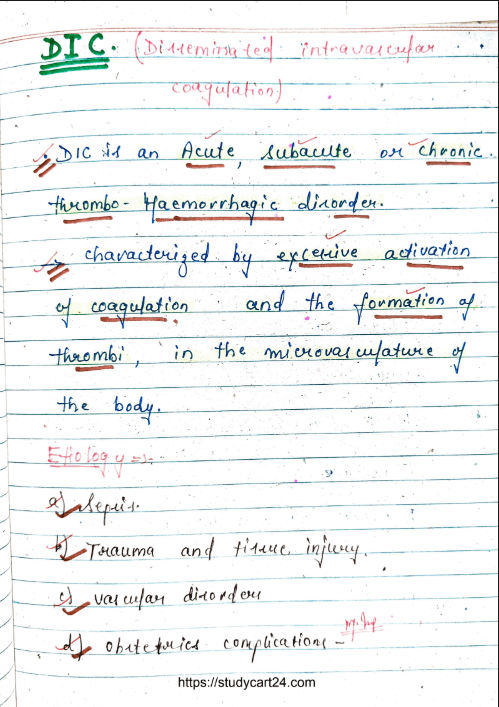 DIC. (Disseminated intravascular
coagulation)
DIC is an Acute, subacute or chronic
thrombo-Haemorrhagic disorder.
→ characterized by excessive activation
of coagulation and the formation of
thrombi, in the microvasculature of
the body.
Etiology =>:-
a) Sepsis.
b) Trauma and tissue injury.
c) vascular disorders
d) obstetrics complications -
https://studycart24.com